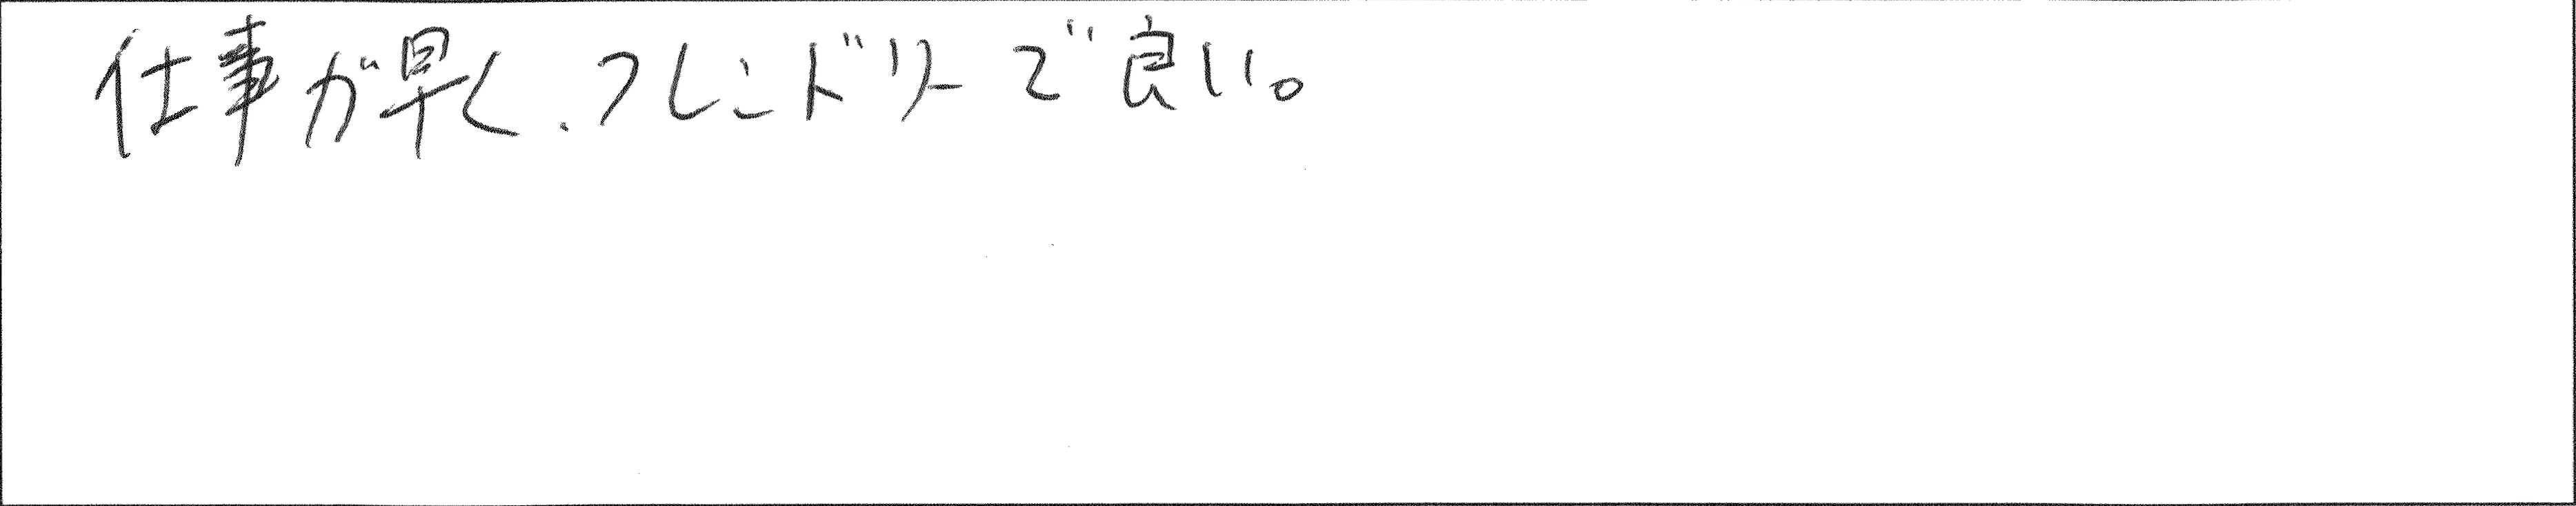 仕事が早く、フレンドリーで良い。